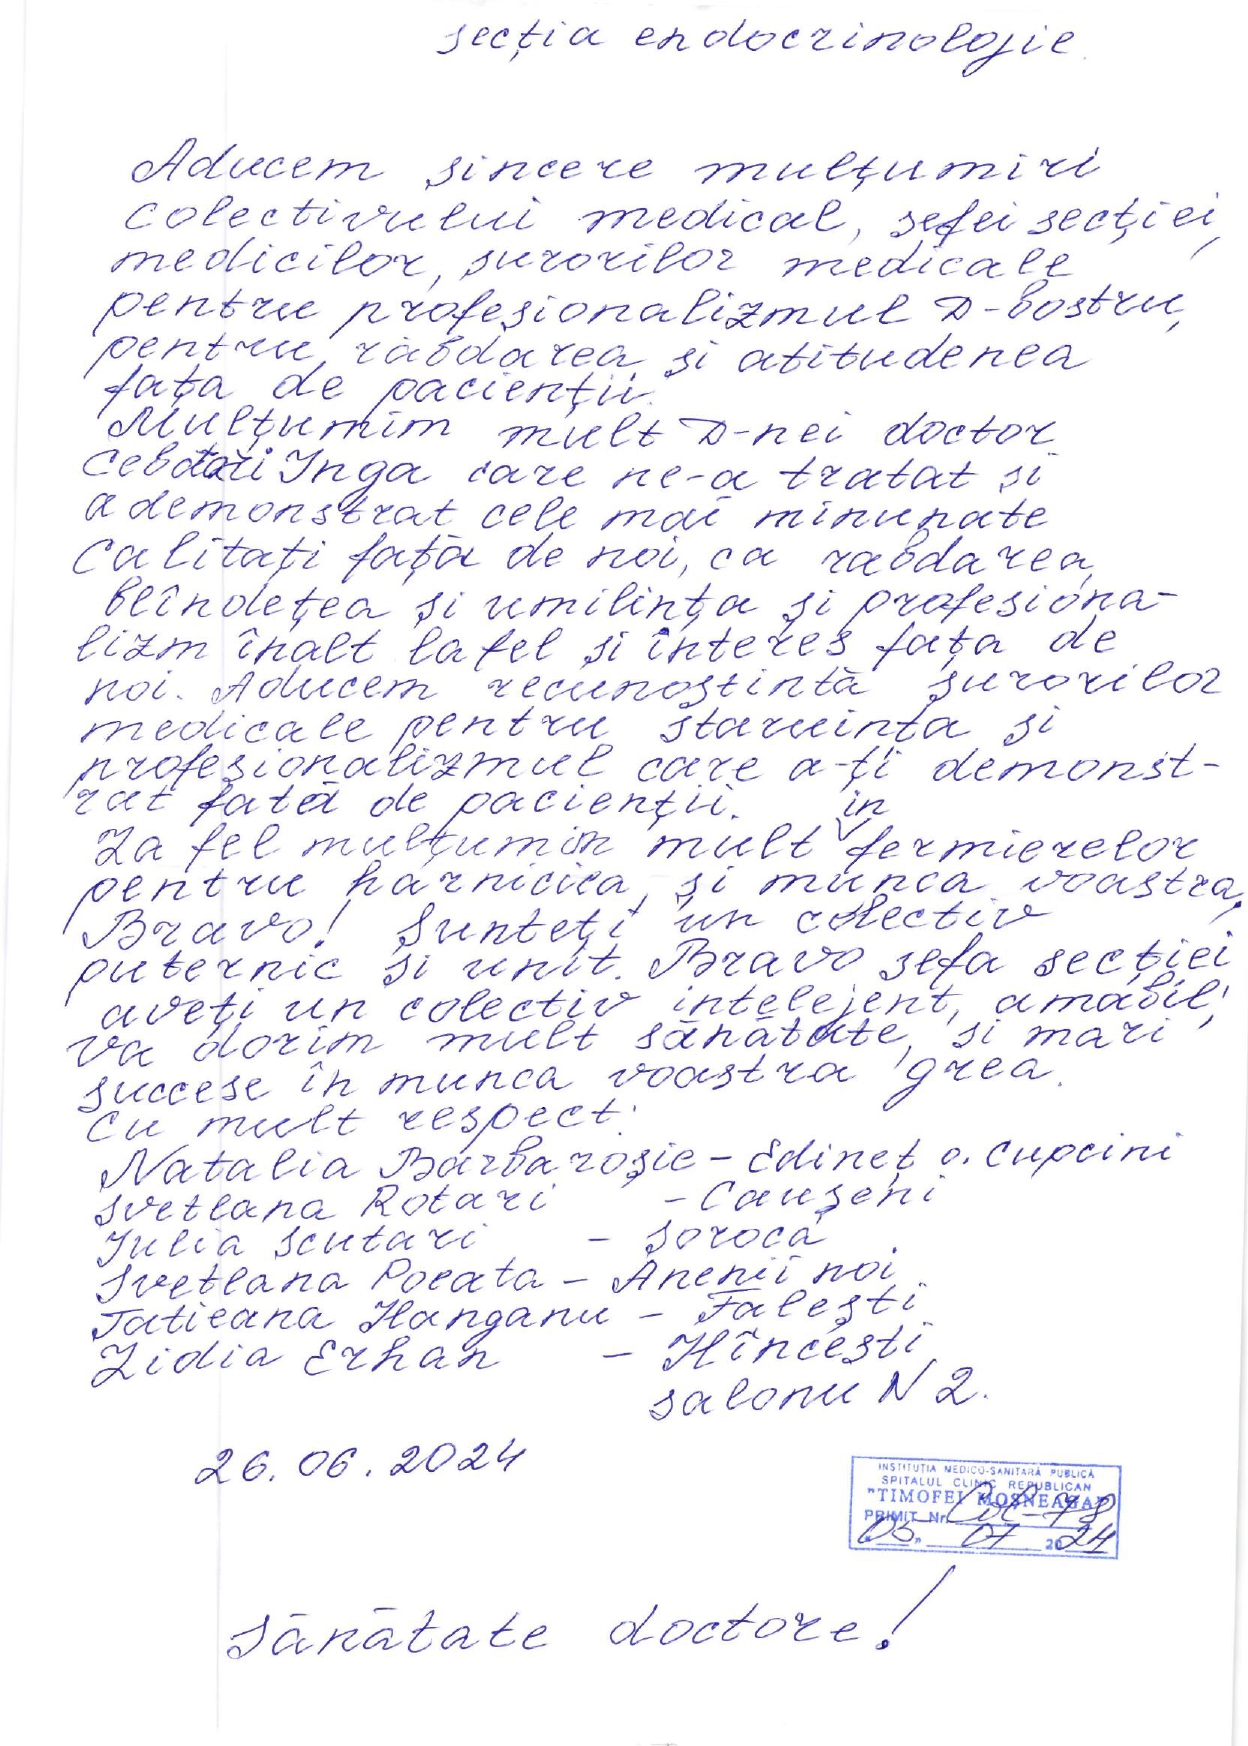 secția endocrinologie.
Aducem sincere mulțumiri
colectivului medical, șefei secției,
medicilor, surorilor medicale
pentru profesionalizmul D-bostru,
pentru răbdarea și atitudenea
fața de paciențîi.
Mulțumim mult D-nei doctor
Cebotari Inga care ne-a tratat și
a demonstrat cele mai minunate
Calitați față de noi, ca rabdarea,
blîndețea și umilința și profesiona-
lizm înalt la fel și interes fața de
noi. Aducem recunoștintă surorilor
medicale pentru staruința și
profesionalizmul care a-ți demonst-
rat fată de pacienții.
La fel mulțumim mult în fermierelor
pentru harnicica și munca voastra,
Bravo! Sunteți un colectiv
puternic și unit. Bravo șefa secției
aveți un colectiv intelejent, amabil,
va dorim mult sănătate, și mari
succese în munca voastra grea.
Cu mult respect:
Natalia Bărbaroșie - Edineț o. Cupcini
Svetlana Rotari - Caușeni
Iulia Scutari - Soroca
Svetlana Poeata - Anenii noi.
Tatieana Hanganu - Falești
Lidia Erhan - Hîncești
salonu N 2.
26.06.2024
INSTITUȚIA MEDICO-SANITARĂ PUBLICĂ
SPITALUL CLINIC REPUBLICAN
"TIMOFEI MOȘNEAGA"
PRIMIT Nr. Col-78
"05" 07 2024
Sănătate doctore!